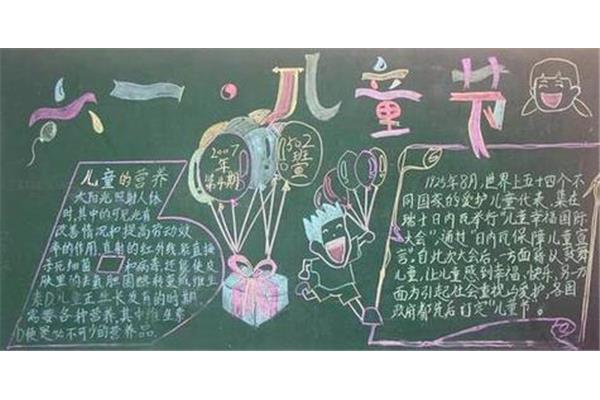 六一·儿童节
2007
年
第十期
1502
班宣
儿童的营养
太阳光照射人体
时,其中的可见光有
改善情况和提高劳动效
率的作用,直射的红外线,能直接
杀死细菌 和病毒,还能使皮
肤里的去氢胆固醇转变成维生
素D,儿童正生长发育的时期
需要各种营养,其中维生素
D便是必不可少的营养品。
1925年8月,世界上五十四个不
同国家的爱护儿童代表,集在
瑞士日内瓦举行"儿童幸福国际
大会",通过"日内瓦保障儿童宣
言",自此次大会后,一方面藉以鼓舞
儿童,让儿童感到幸福、快乐,另一方
面方引起社会重视与爱护,各国
政府都先后订定"儿童节"。